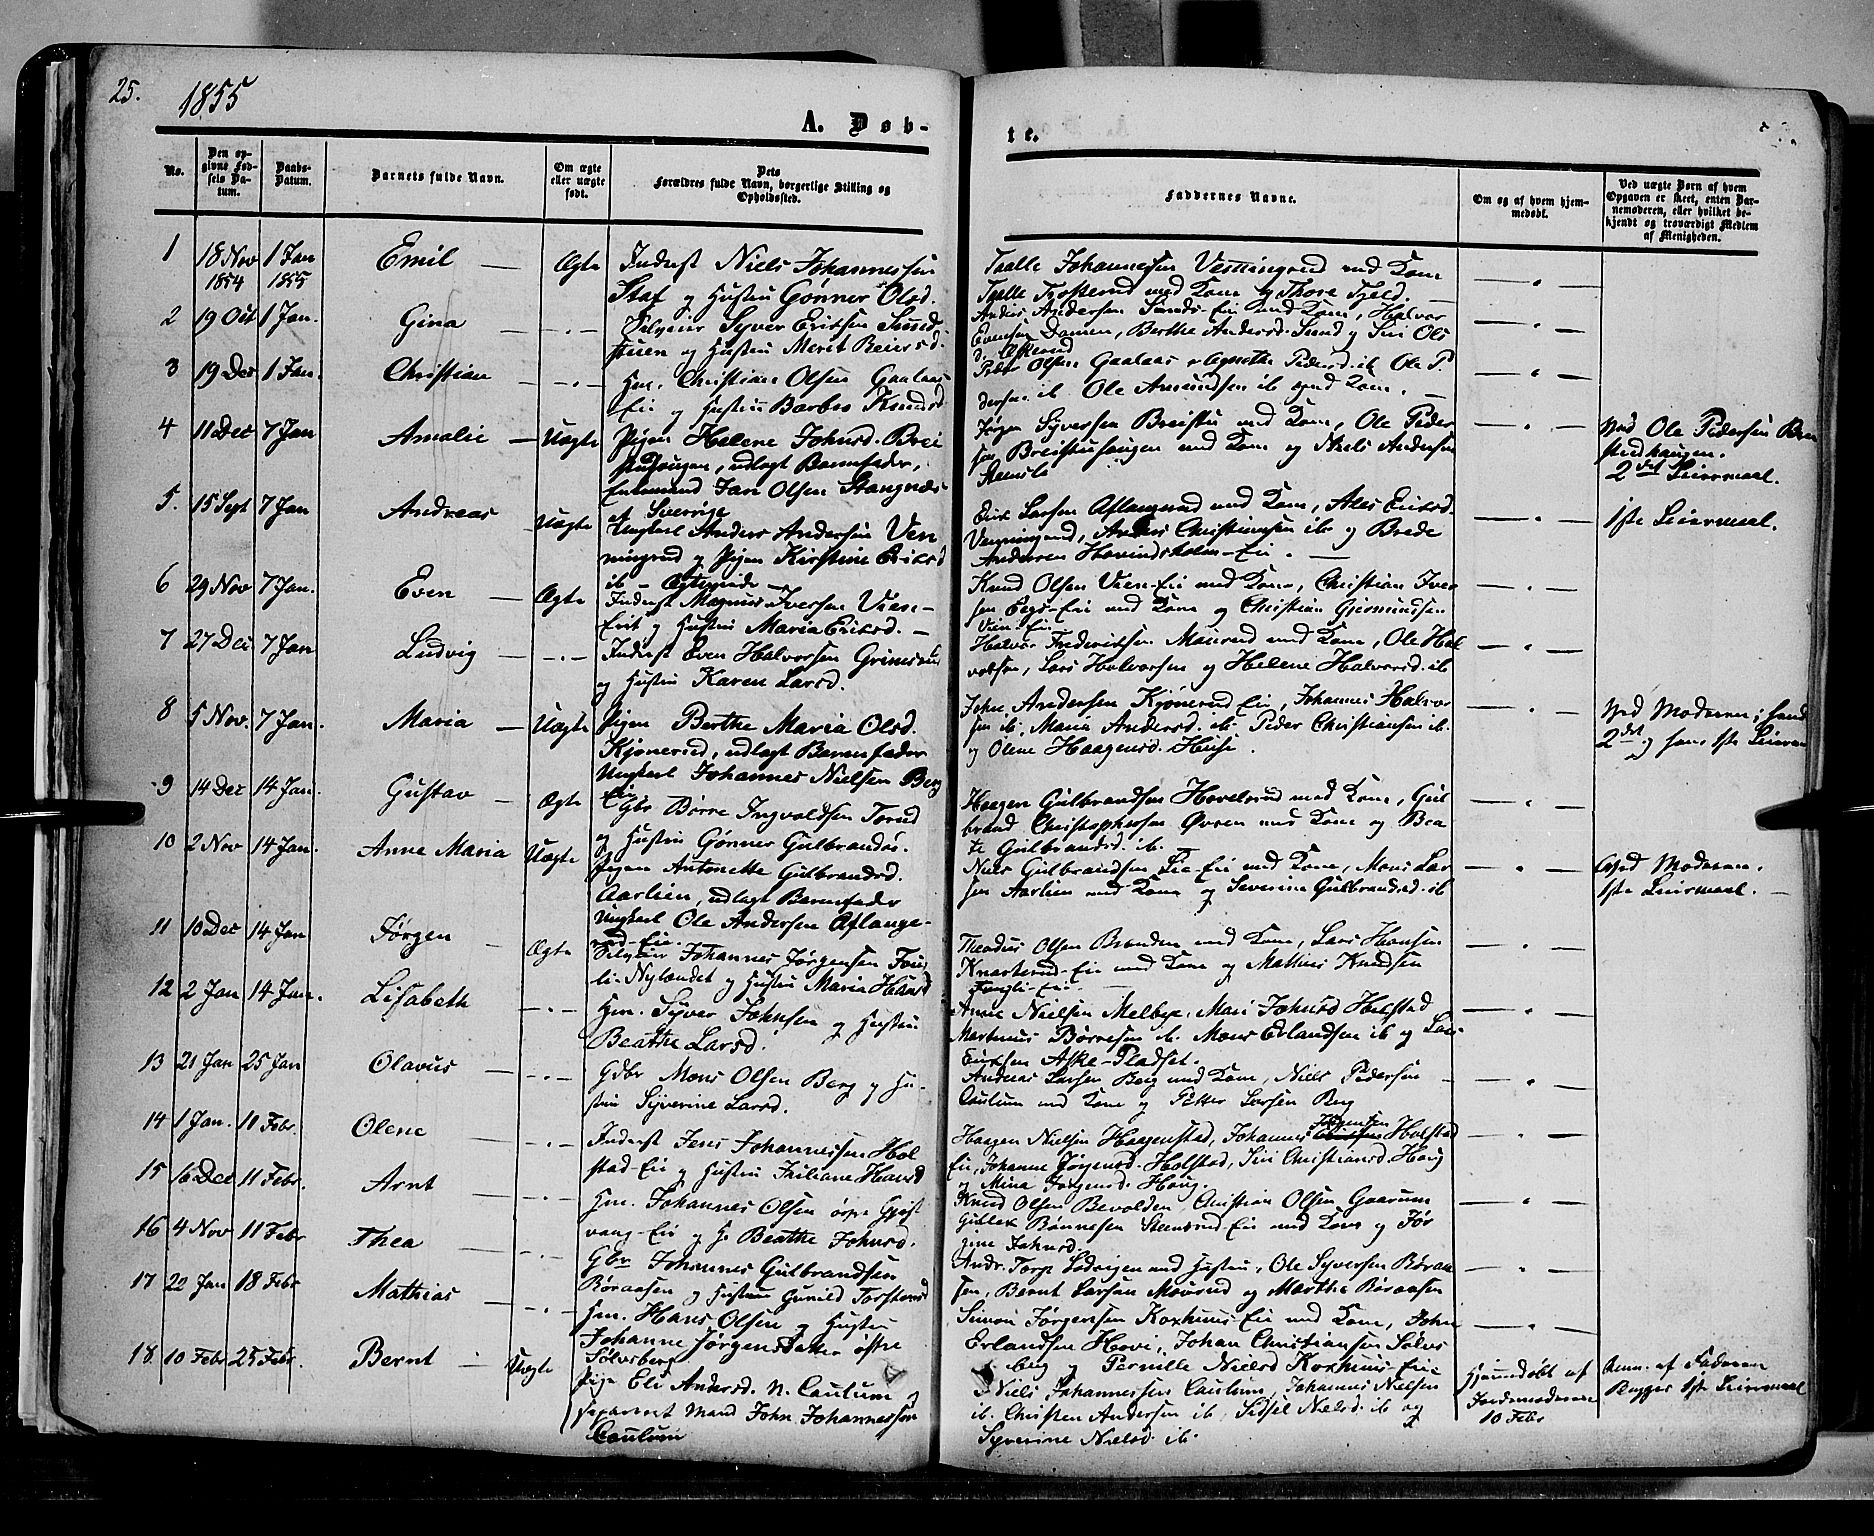 25.
1855
A. Døb-
te.
No.
Den op-
givne Fød-
sels Da-
tum.
Daabs-
Datum.
Barnets fulde Navn.
Om ægte
eller uægte
født.
Dets
Forældres fulde Navn, borgerlige Stilling og
Opholdssted.
Faddernes Navne.
Om og af hvem hjem-
medøbt.
Ved uægte Børn af hvem
Opgaven er skeet, enten Bar-
nemoderen, eller hvilket be-
kjendt og troværdigt Medlem
af Menigheden.
1 18 Nov 1 Jan Emil — Ægte
1854 1855
Inderst Niels Johannessen
og Hustru Gønner Olsd.
Johannesen med Kone
med Kone og Thore
2 19 Oct 1 Jan. Gina — " —
Syver Ericksen Sund
og Hustru Merit Reiersd.
Anders Andersen Sunds-Eie med Kone, Halvor
Evensen Damen, Berthe Andersd. Sund og Siri Ols
3 19 Dec 1 Jan. Christian — " —
Hm. Christian Olsen Gaalaas
Eie og Hustru Barbro Knudsd
Peder Olsen Gaalaas Pedersd. ib Ole P
dersen ib Ole Amundsen ib med Kone.
4 11 Dec 7 Jan Amalie — Uægte
Pigen Helene Johnsd. Brei
stuhaugen, udlagt Barnefader,
Jan Olsen Stangnæs
i Sverrige
Jørgen Syversen Breistu med Kone, Ole Peder
sen Breistuhaugen med Kone og Niels Andersen
Ved Ole Pedersen Brei
stuhaugen.
2det Leiermaal.
5. 15 Sept 7 Jan Andreas — Uægte
Ungkarl Anders Andersen Ven
ningrud og Pigen Kirstine Ericsd
ib
Eric Larsen Aflangrud med Kone, Ales Ericsd.
Venningrud, Anders Christiansen ib og Brede
Andersen Hovindsholm-Eie. —
1ste Leiermaal.
6 29 Nov 7 Jan. Even — Ægte
Inderst Magnus Iversen Vien-
Eie og Hustru Maria Ericsd. —
Knud Olsen Vien-Eie med Kone, Christian Iver
sen med Kone og Christian Gjermundsen
Vien-Eie
7 27 Dec 7 Jan Ludvig — " —
Inderst Even Halvorsen Grimsrud
og Hustru Karen Larsd.
Halvor Frederichsen Maurud med Kone, Ole Hal
vorsen, Lars Halvorsen og Helene Halvorsd. ib
8 5 Nov. 7 Jan. Maria — Uægte
Pigen Berthe Maria Olsd.
Kjønerud, udlagt Barnefader
Ungkarl Johannes Nielsen Berg
Eie
John Andersen Kjønerud Eie, Johannes Halvor
sen ib, Maria Andersd. ib. Peder Christiansen ib.
og Olene Haagensd. Huse.
Ved Moderen; hendes
2det og hans 1ste Leiermaal
9 14 Dec 14 Jan. Gustav — Ægte
Gbr Børre Ingvoldsen Torud
og Hustru Gønner Gulbrandsd.
Haagen Gulbrandsen Hovelsrud med Kone, Gul
brand Christophersen Øvren med Kone og Bea
te Gulbrandsd. ib.
10 2 Nov 14 Jan. Anne Maria Uægte
Pigen Antonette Gulbrandsd.
Aarlien, udlagt Barnefader
Ungkarl Ole Andersen Aflange-
rud-Eie.
Niels Gulbrandsen Lie-Eie med Kone, Mons Lar
sen Aarlien med Kone og Severine Gulbrandsd. ib
Ved Moderen.
1ste Leiermaal. —
11 10 Dec 14 Jan Jørgen — Ægte
Johannes Jørgensen
Nylandet og Hustru Maria Hansd
Theodor Olsen Brenden med Kone, Lars Hansen
Knarterud-Eie med Kone og Mathias Knudsen
12 2 Jan 14 Jan. Lisabeth — " —
Hm. Syver Johnsen og Hustru
Beathe Larsd.
Anne Nielsen Melbye, Mari Johnsd Holstad
Martinus Børresen ib. Mons Erlandsen ib og Lars
Ericksen Aske-Pladset.
13 21 Jan 25 Jan Olavus — " —
Gdbr Mons Olsen Berg og Hu-
stru Syverine Larsd.
Andreas Larsen Berg med Kone, Niels Pedersen
Caulum med Kone og Petter Larsen Berg
14 1 Jan. 11 Febr. Olene — " —
Inderst Jens Johannessen Hol
stad-Eie og Hustru Juliane Hansd
Haagen Nielsen Haagenstad, Johannes Jørgensen Holstad
Eie, Johanne Jørgensd. Holstad, Siri Christiansd. Haug
og Mina Jørgensd. Haug.
15 16 Dec 11 Febr. Arnt — " —
Hm. Johannes Olsen
vang-Eie og H. Beathe Johnsd.
Knud Olsen Bevolden, Christian Olsen Gaarum
Rønnesen Stensrud-Eie med Kone og Jør
gine Johnsd.
16 4 Nov 11 Febr Thea — " —
Gbr Johannes Gulbrandsen
Røraasen og Hustru Gunild Torstensd
Andr. Torp Lodvigen med Hustru, Ole Syversen Røraa
sen, Bernt Larsen Maurud og Marthe Røraasen
17 22 Jan 18 Febr Mathias — " —
Hm. Hans Olsen og Hustru
Johanne Jørgensdatter østre
Sølvsberg
Simon Jørgensen Koxhuus Eie med Kone, John
Erlandsen Hovi, Johan Christiansen Sølvs
berg og Pernille Nielsd Koxhuus Eie
18 10 Febr 25 Febr. Bernt — Uægte
Pige Eli Andersd. n. Caulum og
separeret Mand John Johannessen
Caulum
Niels Johannessen Caulum, Johannes Nielsen
ib. Christen Andersen ib, Sidsel Nielsd. ib og
Syverine Nielsd. ib.
Hjemmedøbt af
Jordemoderen
10 Febr
Anm. af Faderen
1ste Leiermaal